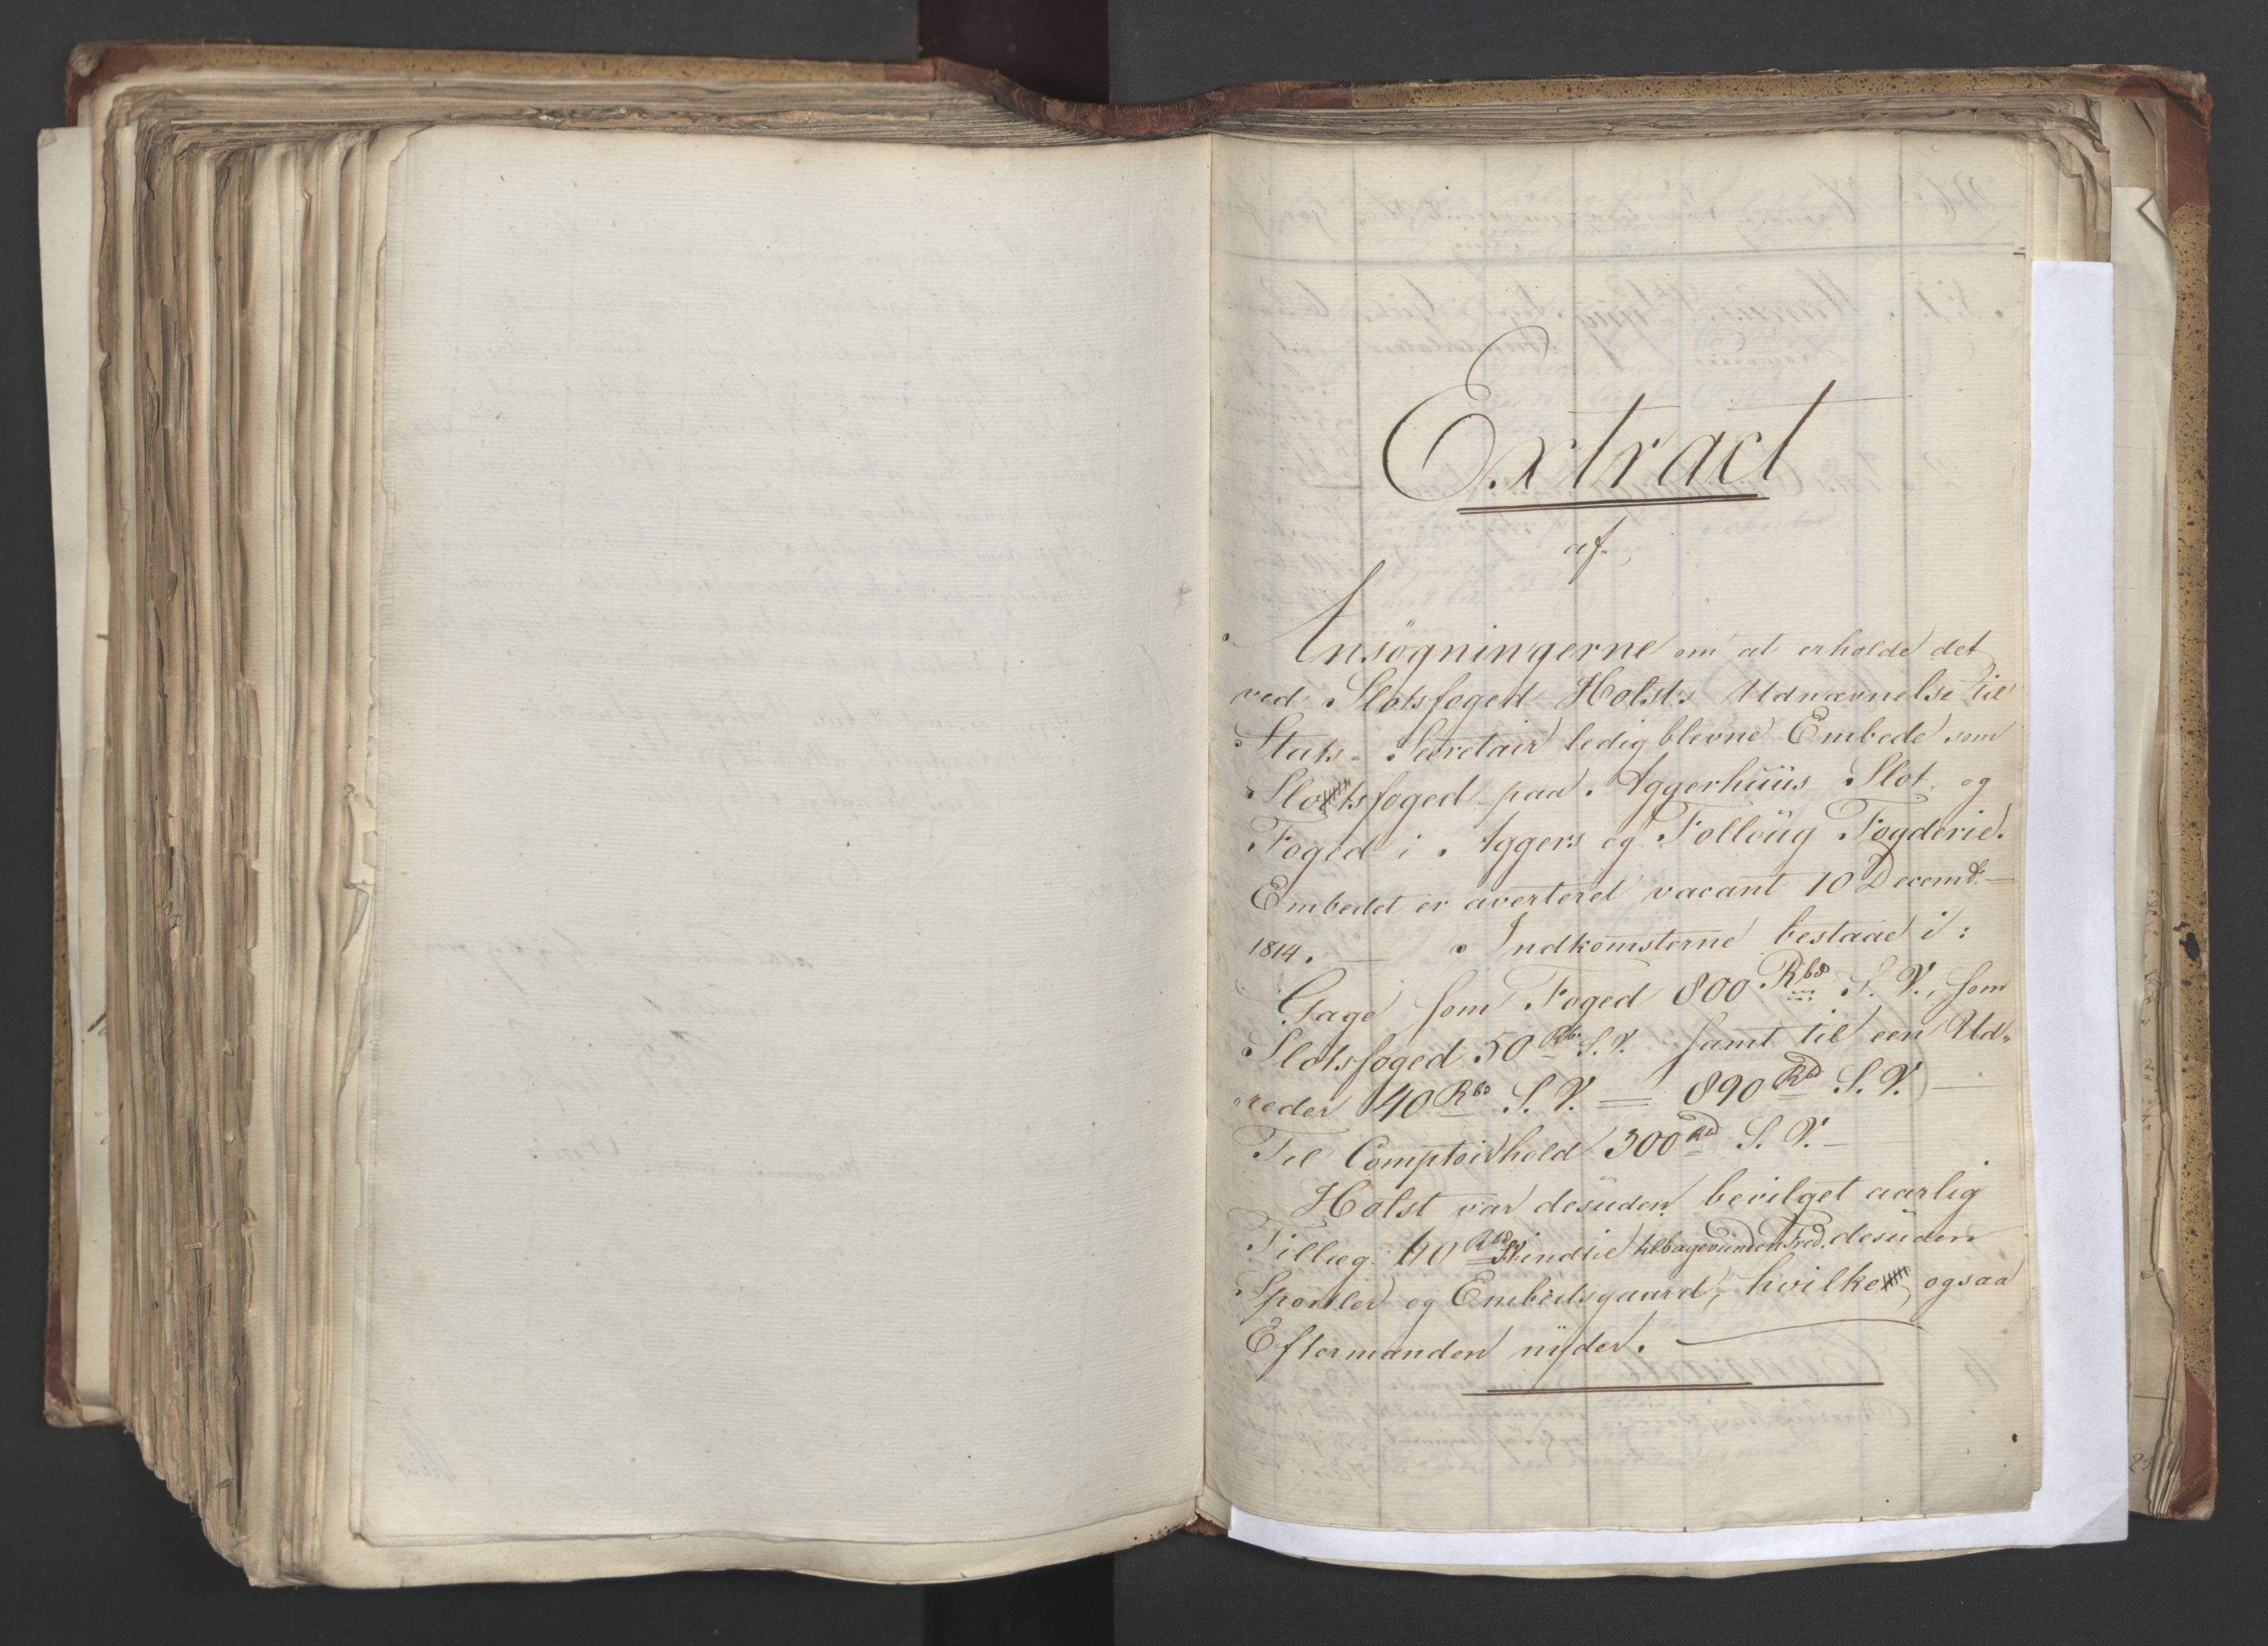 Extract
af
Ansøgningerne om at erholde det
ved Slotsfoged Holsts Udnævnelse til
Stats-Secretair ledigblevne Embede som
Slotsfoged paa Aggerhuus Slot og
Foged i Aggers og Folloug Fogderie.
Embedet er averteret vacant 10 Decembr.
1814. — Indkomsterne bestaae i:
Gage som Foged 800 Rbd S. V., som
Slotsfoged 50 Rb. S. V. samt til een Ud-
reder 40 Rbd S. V. = 890 Rbd S. V. —
Til Comptoirhold 300 Rbd S. V. —
Holst var desuden bevilget aarlig
Tillæg indtil tilbagevunden Fred. desuden
Sportler og Embedsgaard, hvilke ogsaa
Eftermanden nyder. —